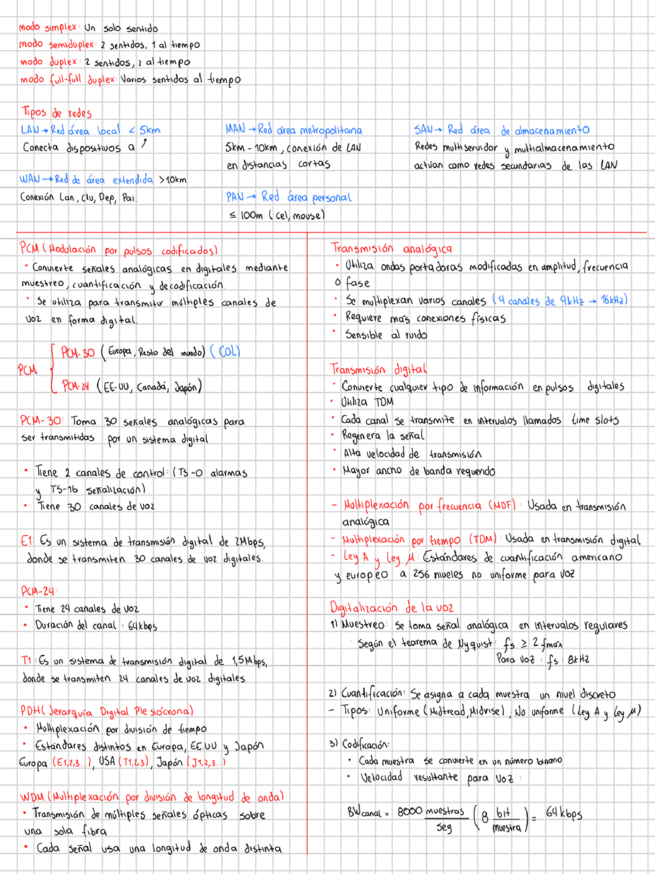 modo simplex: Un solo sentido
modo semiduplex: 2 sentidos, 1 al tiempo
modo duplex: 2 sentidos, 2 al tiempo
modo full-full duplex: Varios sentidos al tiempo
Tipos de redes
LAN → Red área local < 5km
Conecta dispositivos a ↑
MAN → Red área metropolitana
5km - 10km, conexión de LAN
en distancias cortas
SAN → Red área de almacenamiento
Redes multiservidor y multialmacenamiento
actúan como redes secundarias de las LAN
WAN → Red de área extendida >10km
Conexión Lan, Ciu, Dep, Pai.
PAN → Red área personal
≤ 100m (cel, mouse)
PCM (Modulación por pulsos codificados)
• Convierte señales analógicas en digitales mediante
muestreo, cuantificación y decodificación.
• Se utiliza para transmitir múltiples canales de
voz en forma digital.
PCM
PCM-30 (Europa, Resto del mundo) (COL)
PCM-24 (EE-UU, Canadá, Japón)
PCM-30: Toma 30 señales analógicas para
ser transmitidas por un sistema digital
• Tiene 2 canales de control: (TS-0 alarmas
y TS-16 señalización)
• Tiene 30 canales de voz
E1: Es un sistema de transmisión digital de 2Mbps,
donde se transmiten 30 canales de voz digitales.
PCM-24:
• Tiene 24 canales de voz
• Duración del canal: 64kbps
T1: Es un sistema de transmisión digital de 1,5Mbps,
donde se transmiten 24 canales de voz digitales.
PDH (Jerarquía Digital Plesiócrona)
• Multiplexación por división de tiempo
• Estándares distintos en Europa, EEUU y Japón
Europa (E1,2,3...), USA (T1,2,3), Japón (J1,2,3...)
WDM (Multiplexación por división de longitud de onda)
• Transmisión de múltiples señales ópticas sobre
una sola fibra
• Cada señal usa una longitud de onda distinta
Transmisión analógica
• Utiliza ondas portadoras modificadas en amplitud, frecuencia
o fase
• Se multiplexan varios canales (4 canales de 4kHz → 16kHz)
• Requiere mas conexiones físicas
• Sensible al ruido
Transmisión digital
• Convierte cualquier tipo de información en pulsos digitales
• Utiliza TDM
• Cada canal se transmite en intervalos llamados time slots
• Regenera la señal
• Alta velocidad de transmisión
• Mayor ancho de banda requerido
- Multiplexación por frecuencia (MDF): Usada en transmisión
analógica
- Multiplexación por tiempo (TDM): Usada en transmisión digital
- Ley A y Ley μ: Estándares de cuantificación americano
y europeo a 256 niveles no uniforme para voz
Digitalización de la voz
1) Muestreo: se toma señal analógica en intervalos regulares
Según el teorema de Nyquist: fs ≥ 2 fmax
Para voz: fs 8kHz
2) Cuantificación: Se asigna a cada muestra un nivel discreto
- Tipos: Uniforme (Midtread, Midrise), No uniforme (Ley A y Ley μ)
3) Codificación:
• Cada muestra se convierte en un número binario
• Velocidad resultante para voz:
BWcanal = 8000 muestras/seg (8 bit/muestra) = 64kbps